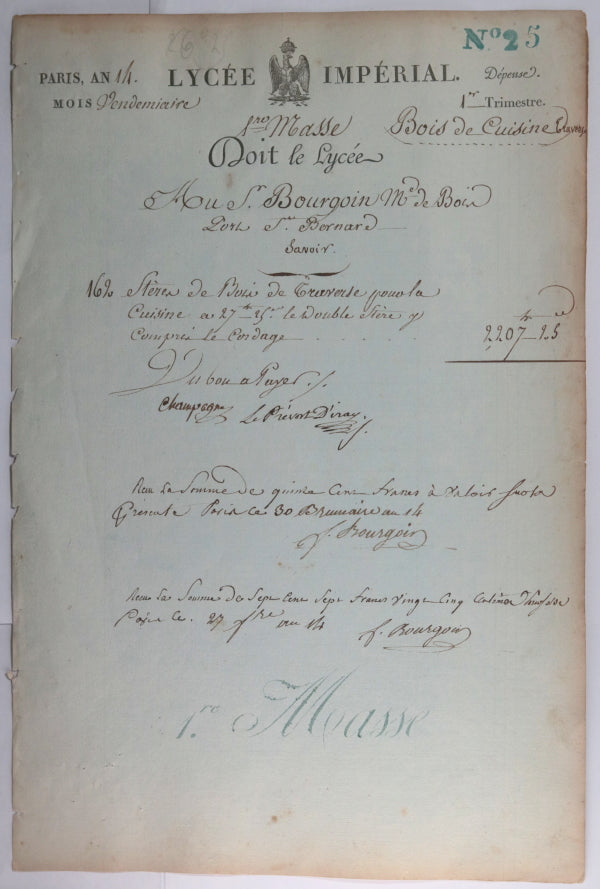 N.º 25
PARIS, AN 14. LYCÉE IMPÉRIAL. Dépense.
MOIS Vendemiaire 1.er Trimestre.
1.re Masse Bois de Cuisine Traverse
Doit le Lycée
Au S.r Bourgoin M.d de Bois
Port S.t Bernard
Savoir.
162 Stères de Bois de Traverse pour la
Cuisine a 27 tt 25 c.es le Double Stère y
Compris le Cordage . . . . . 2,207 tt 25 c
Vu bon a Payer
Champagne Le Prévost D'iray
Reçu La Somme de quinze Cent francs à valoir sur la
Présente Paris ce 30 Brumaire an 14
f. Bourgoin
Reçu La Somme de Sept Cent Sept francs Vingt Cinq Centimes
Paris Ce 27 f.re an 14 f. Bourgoin
1.re Masse